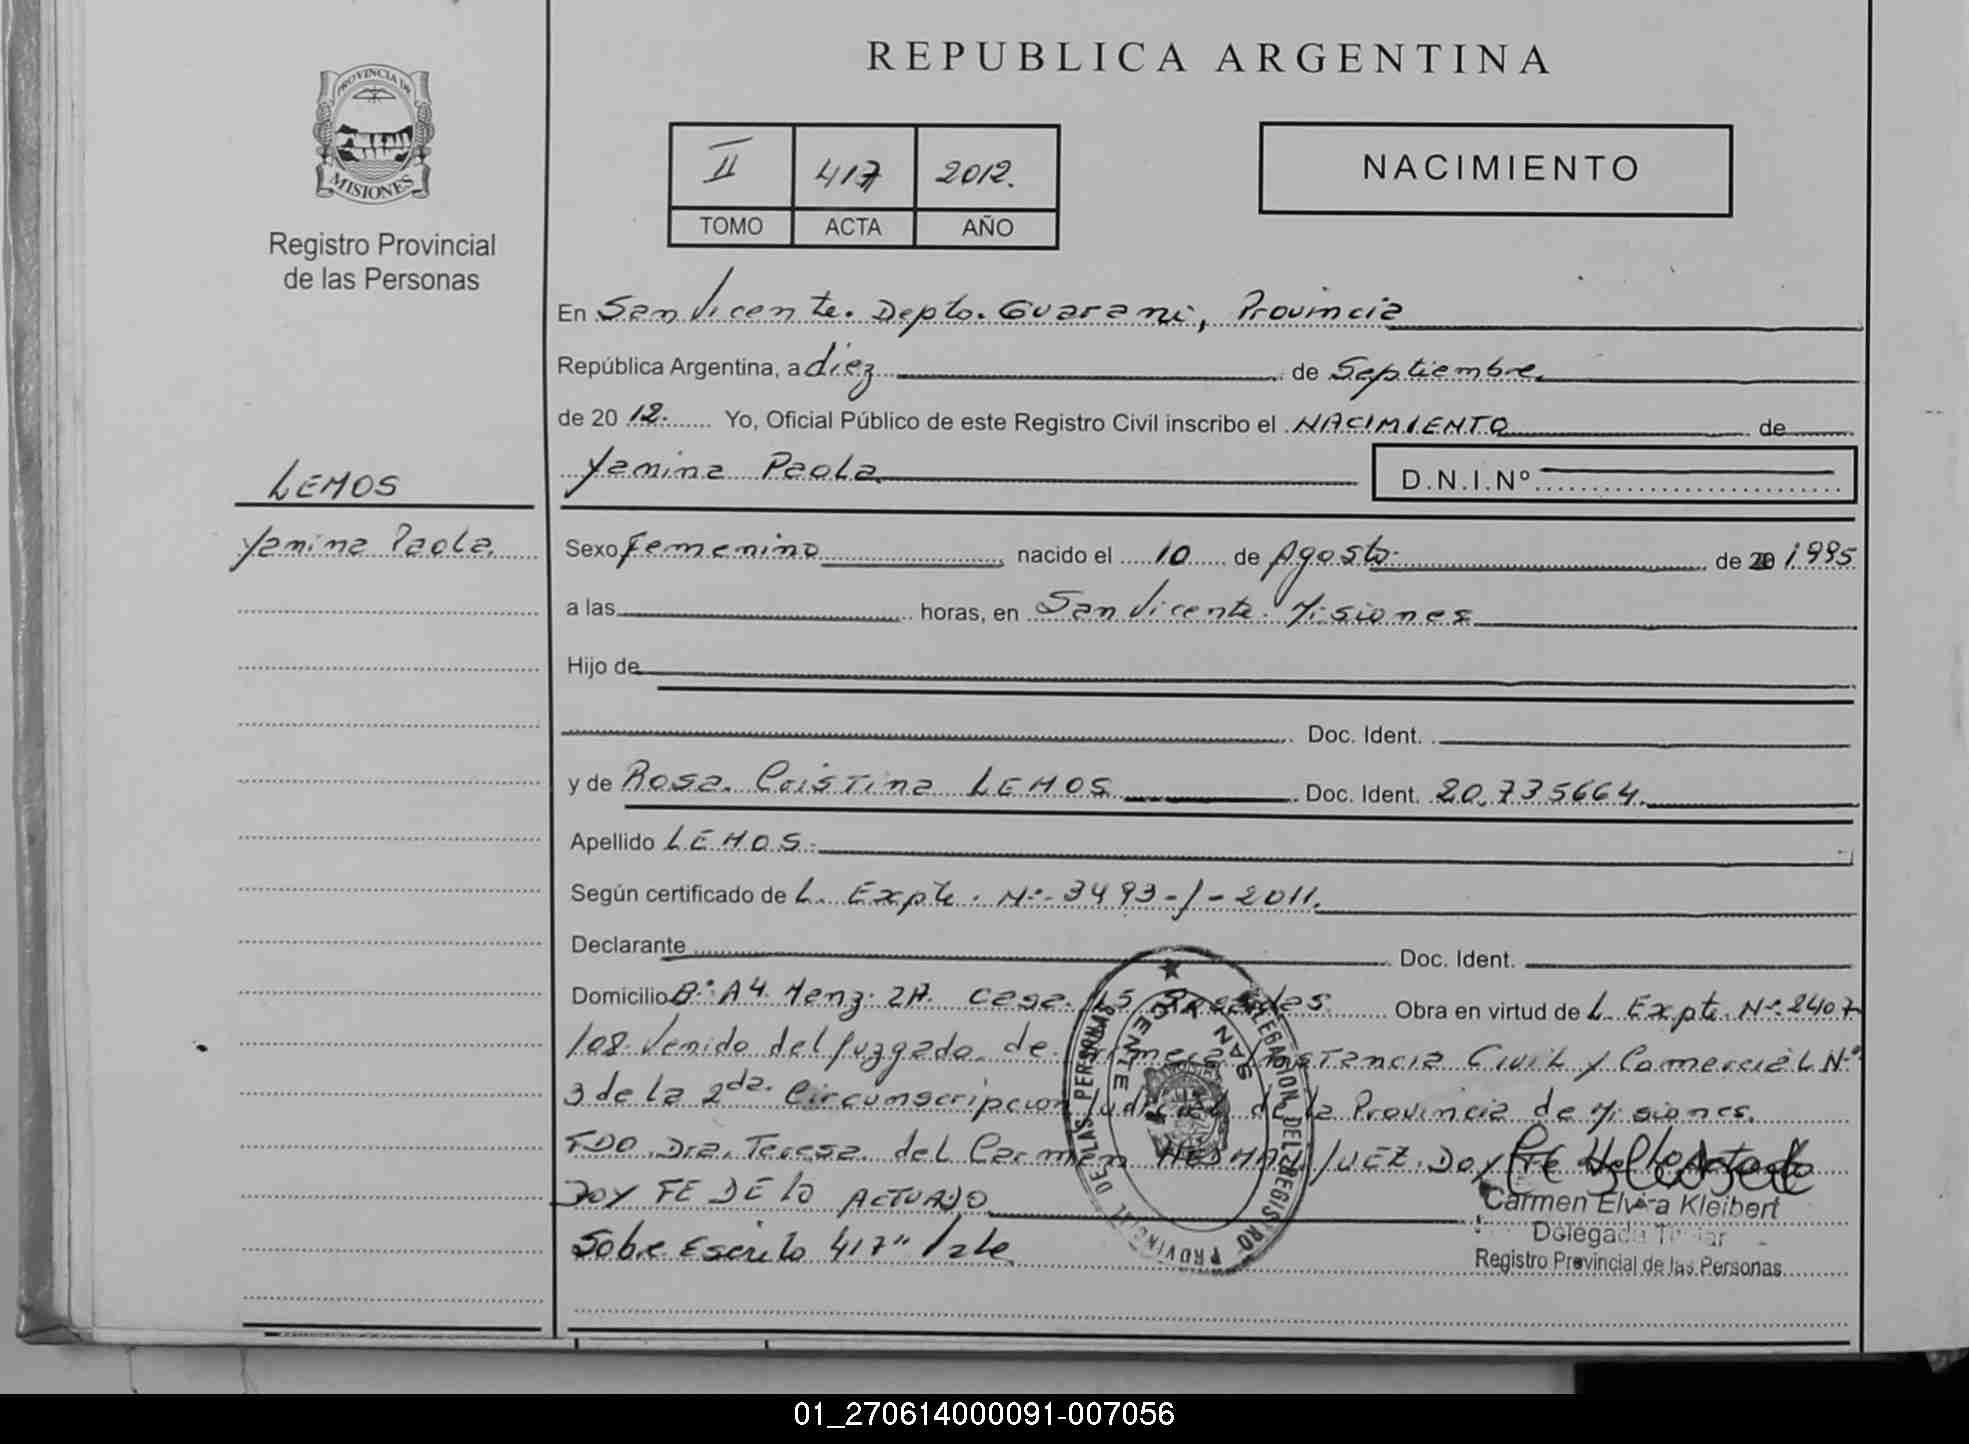 REPUBLICA ARGENTINA
PROVINCIA DE
MISIONES
Registro Provincial
de las Personas
II 417 2012.
TOMO ACTA AÑO
NACIMIENTO
En San Vicente. Depto. Guarani, Provincia
República Argentina, a diez de Septiembre
de 20 12. Yo, Oficial Público de este Registro Civil inscribo el NACIMIENTO de
LEMOS
Yamina Paola
D.N.I.Nº
Yamina Paola
Sexo Femenino nacido el 10 de Agosto de 20 1995
a las horas, en San Vicente. Misiones
Hijo de
Doc. Ident.
y de Rosa Cristina LEMOS Doc. Ident. 20.735664.
Apellido LEMOS.
Según certificado de L. Expte. Nº 3493-/-2011.
Declarante Doc. Ident.
Domicilio Bº A4 Manz. 2A. Casa Obra en virtud de L. Expte. Nº 2407
/08 Venido del Juzgado de Primera Instancia Civil y Comercial Nº
3 de la 2da. Circunscripcion Judicial de la Provincia de Misiones.
FDO. Dra. Teresa del Carmen JUEZ. Doy Fe
DOY FE DE lo ACTUADO
Sobre Escrito 417" Vale
Carmen Elvira Kleibert
Delegada Titular
Registro Provincial de las Personas
DELEGACION DEL REGISTRO PROVINCIAL DE LAS PERSONAS
SAN VICENTE
01_270614000091-007056